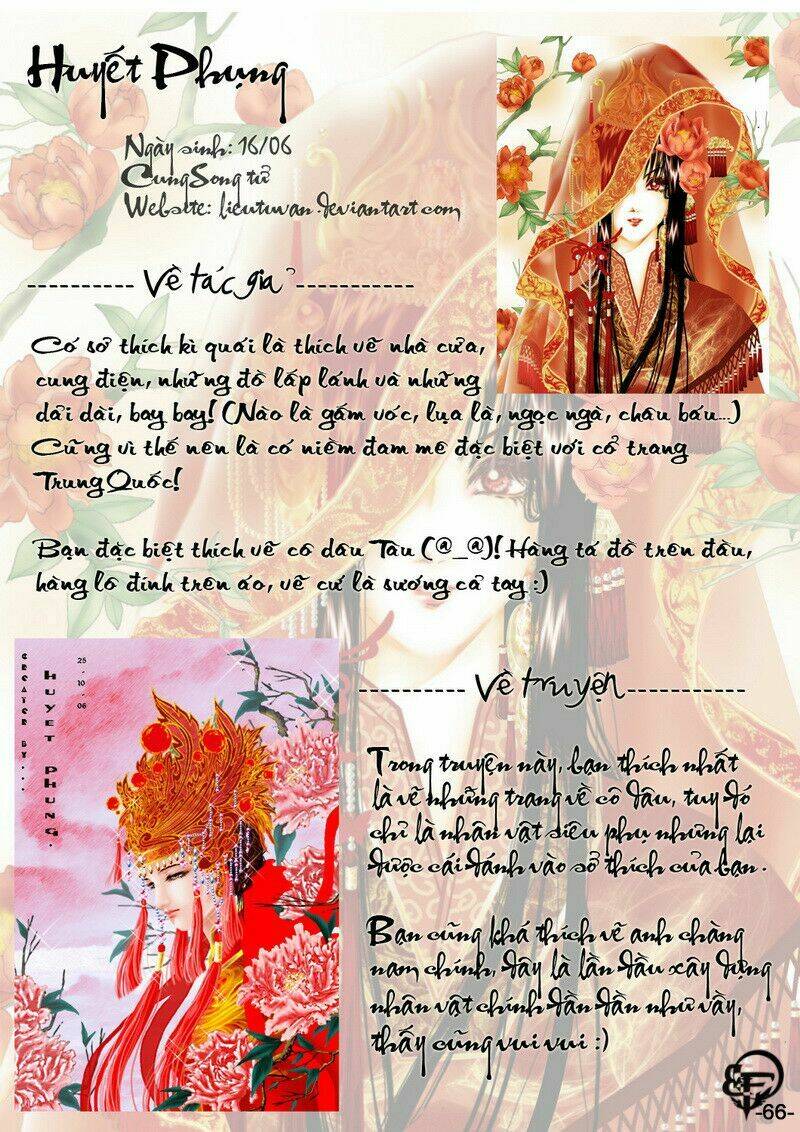 Huyết Phụng
Ngày sinh: 16/06
Cung Song tử
Website: lieutuvan.deviantart.com
---------- Về tác giả -----------
Có sở thích kì quái là thích vẽ nhà cửa,
cung điện, những đồ lấp lánh và những
dải dài, bay bay! (Nào là gấm vóc, lụa là, ngọc ngà, châu báu...)
Cũng vì thế nên là có niềm đam mê đặc biệt với cổ trang
Trung Quốc!
Bạn đặc biệt thích vẽ cô dâu Tàu (@_@)! Hàng tá đồ trên đầu,
hàng lô đính trên áo, vẽ cứ là sướng cả tay :)
CREATED BY...
HUYET PHUNG.
25-10-06
---------- Về truyện -----------
Trong truyện này, bạn thích nhất
là vẽ những trang về cô dâu, tuy đó
chỉ là nhân vật siêu phụ nhưng lại
được cái đánh vào sở thích của bạn.
Bạn cũng khá thích vẽ anh chàng
nam chính, đây là lần đầu xây dựng
nhân vật chính đần đần như vầy,
thấy cũng vui vui :)
-66-